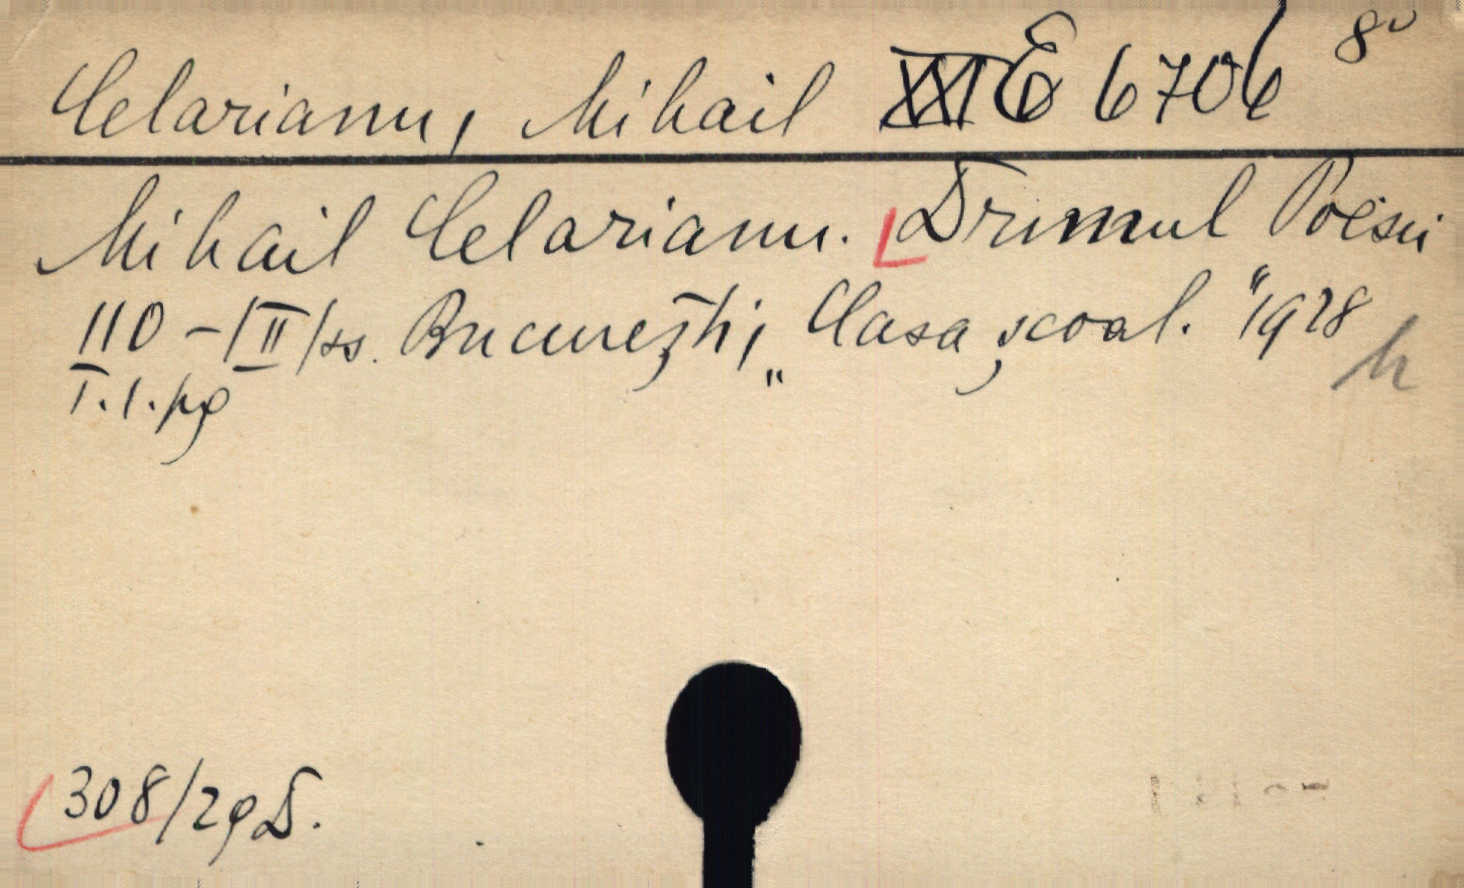 Celarianu, Mihail XXI E 6706 8°
Mihail Celarianu. Drumul Poesii
110 - /II/ ss. București; „Clasa școal." 1928
T. 1. pg
h
308/29 D.